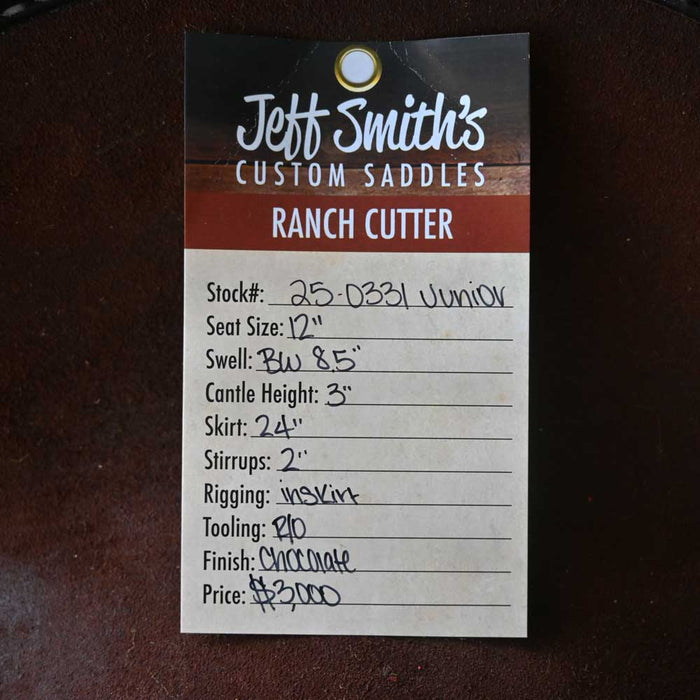 Jeff Smith's
CUSTOM SADDLES
RANCH CUTTER
Stock#: 25-0331 Junior
Seat Size: 12"
Swell: BW 8.5"
Cantle Height: 3"
Skirt: 24"
Stirrups: 2"
Rigging: inskirt
Tooling: R/O
Finish: Chocolate
Price: $3,000